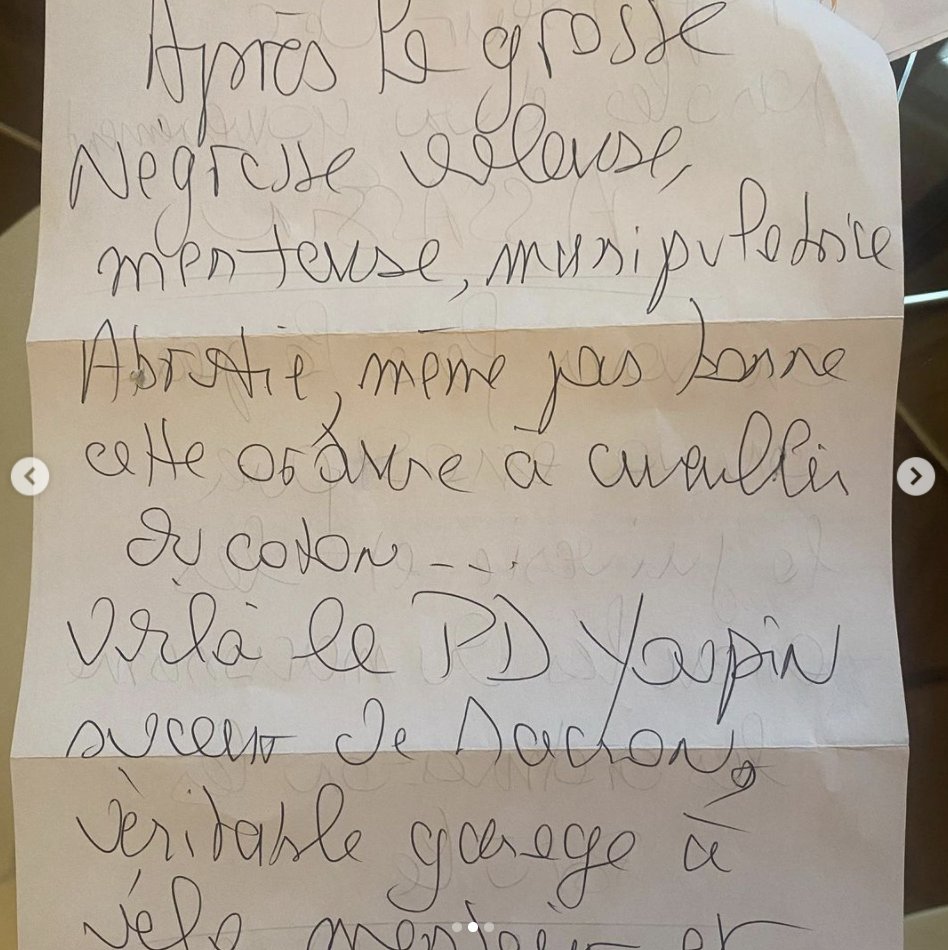 Après la grosse
Négresse voleuse,
menteuse, manipulatrice
Abrutie, même pas bonne
cette ordure à cueillir
du coton ---.
Voilà le PD Youpin
suceur de
véritable garage à
vélo menteur et